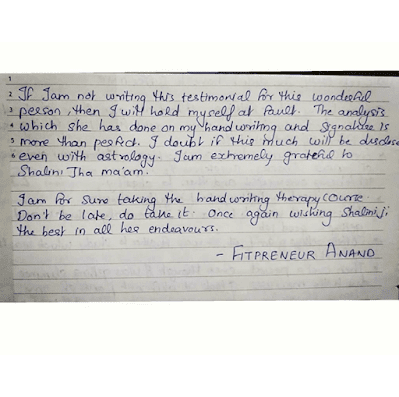 1
2 If Iam not writing this testimonial for this wonderful
3 person, then I will hold myself at Fault. The analysis
4 which she has done on my handwriting and signature is
5 more than perfect. I doubt if this much will be disclose
6 even with astrology. Iam extremely grateful to
Shalini Jha ma'am.
Iam for sure taking the handwriting therapy course.
Don't be late, do take it. Once again wishing Shaliniji
the best in all her endeavours.
- FITPRENEUR ANAND